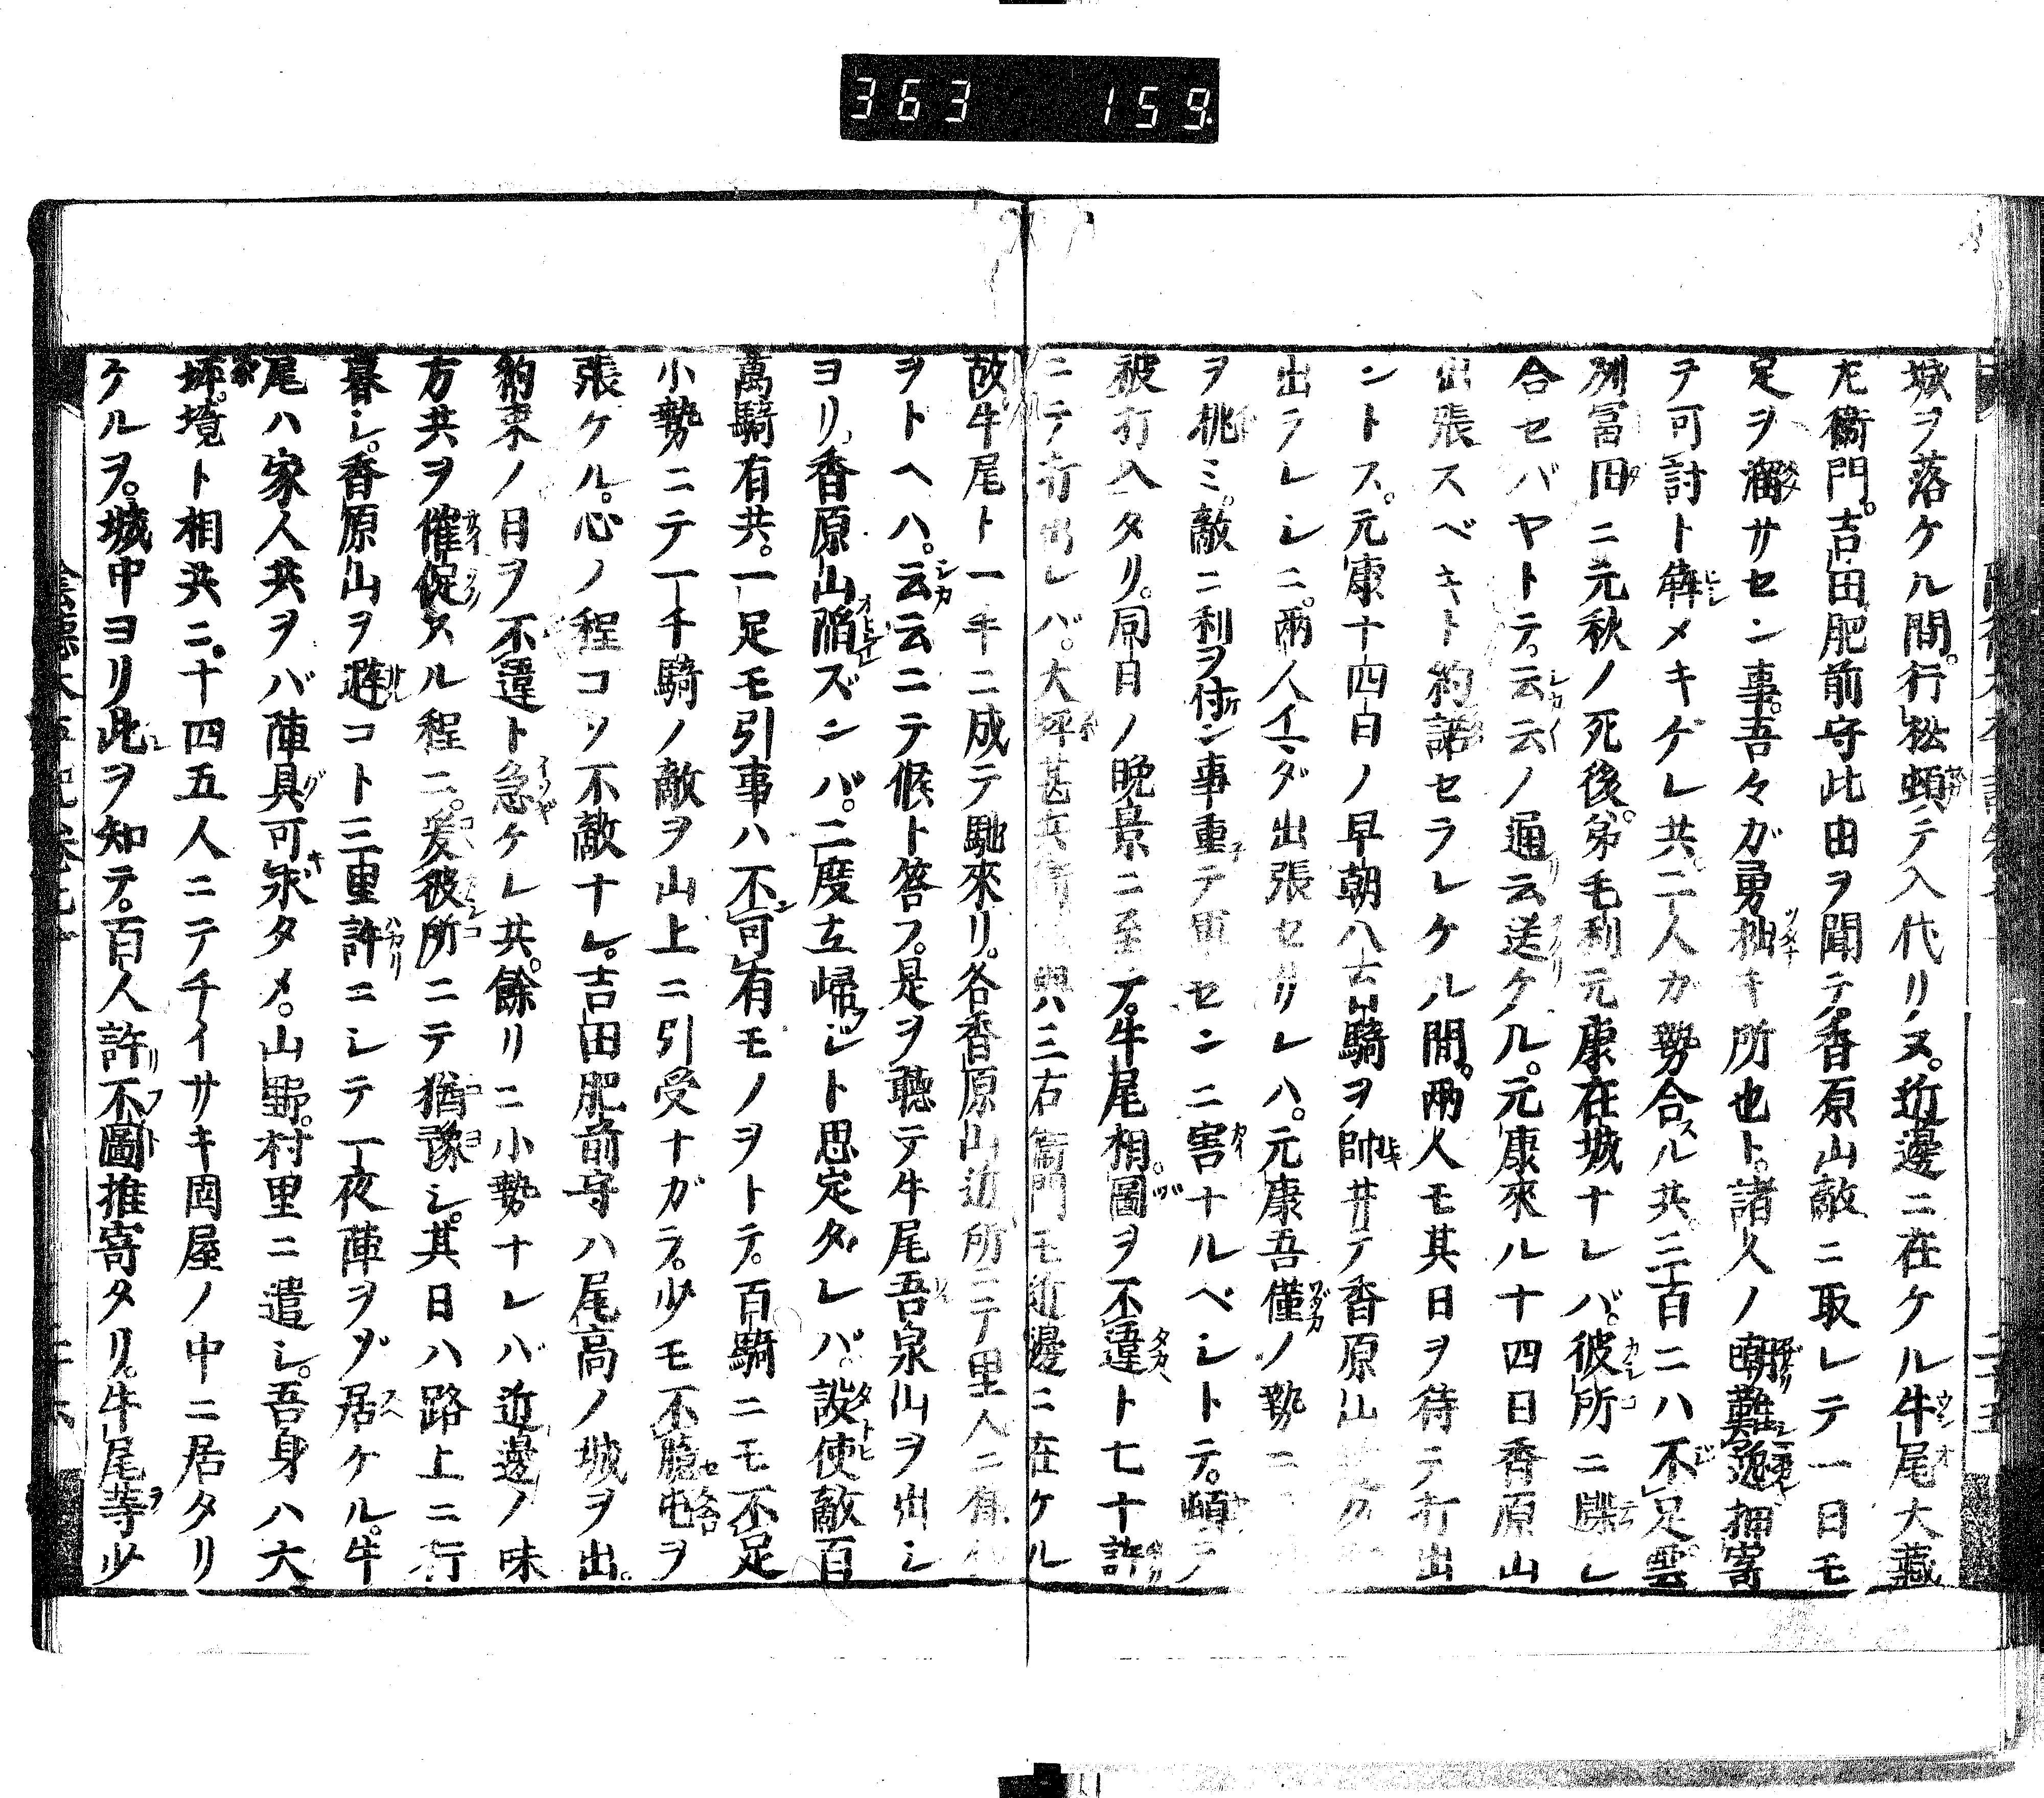 363 159
城ヲ落ケル間。行松頓テ入代リヌ。近邊ニ在ケル牛尾大藏
左衞門。吉田肥前守此由ヲ聞テ。香原山敵ニ取レテ一日モ
足ヲ溜サセン事。吾々ガ勇拙キ所也ト。諸人ノ嘲難逸押寄
ヲ可討ト犇メキゲレ共。二人カ勢合スル共三百ニハ不足。雲
州冨田ニ元秋ノ死後。弟毛利元康在城ナレバ。彼所ニ牒シ
合セバヤトテ。云云ノ通云送ケル。元康來ル十四日香原山
出張スベキト約諾セラレケル間。兩人モ其日ヲ待テ打出
ントス。元康十四日ノ早朝八百騎ヲ帥井テ香原山
出ラレシニ。兩人イマダ出張セザリレハ。元康吾僅ノ勢ニ
ヲ挑ミ。敵ニ利ヲ付ン事重テ軍センニ害ナルベシトテ。頓テ
被打入タリ。同日ノ晩景ニ至テ。牛尾相圖ヲ不違ト七十許
ニテ打出レバ。大坪甚兵衞 與三右衞門モ近邊ニ在ケル
故。牛尾ト一手ニ成テ馳來リ。各香原山近所ニテ里人ニ有
ヲトヘハ。云云ニテ候ト答フ。是ヲ聽テ牛尾吾泉山ヲ出シ
ヨリ。香原山陷ズンバ。二度立歸ジト思定タレバ。設使敵百
萬騎有共。一足モ引事ハ不可有モノヲトテ。百騎ニモ不足
小勢ニテ一千騎ノ敵ヲ山上ニ引受ナガラ。少モ不臆屯ヲ
張ケル。心ノ程コソ不敵ナレ。吉田肥前守ハ尾高ノ城ヲ出。
約束ノ日ヲ不違ト急ケレ共。餘リニ小勢ナレバ近邊ノ味
方共ヲ催促スル程ニ。爰彼所ニテ猶豫シ。其日ハ路上ニ行
暮シ。香原山ヲ避コト三里許ニシテ一夜陣ヲゾ居ケル。牛
尾ハ家人共ヲバ陣具可求タメ。山野。村里ニ遣シ。吾身ハ大
坪。境ト相共ニ。十四五人ニテチイサキ岡屋ノ中ニ居タリ
ケルヲ。城中ヨリ此ヲ知テ。百人許不圖推寄タリ。牛尾等少